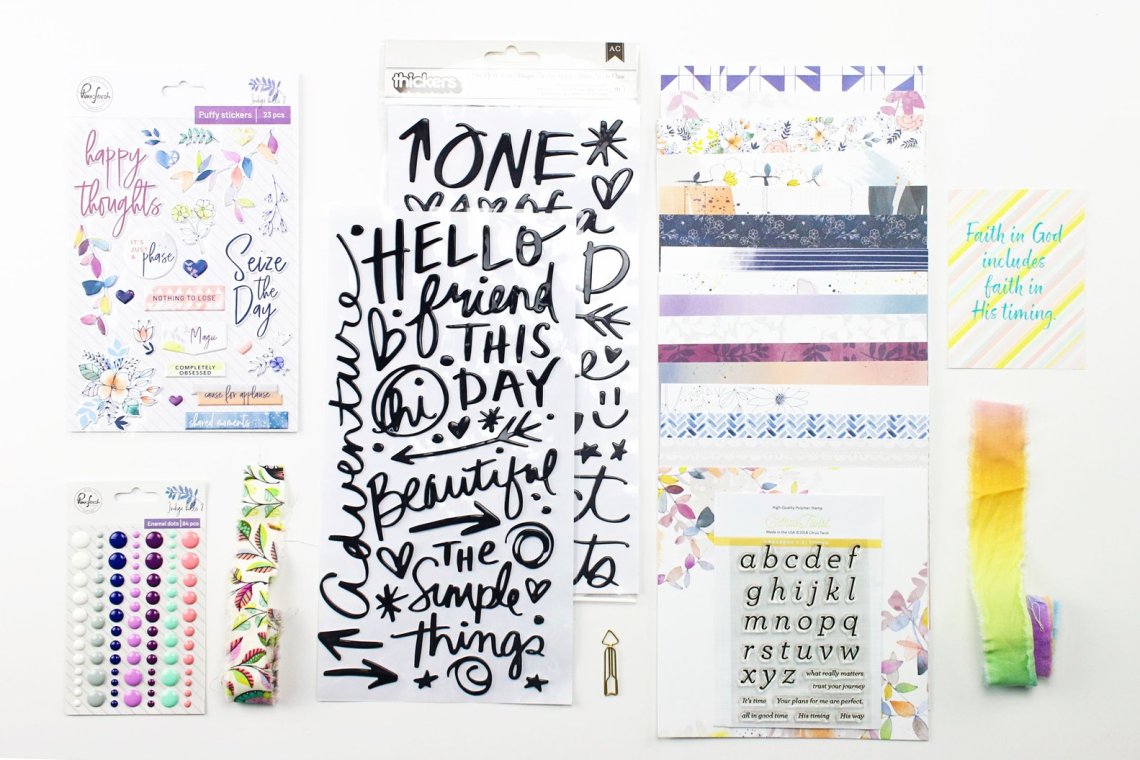 Pinkfresh
Indigo hills 2
Puffy stickers | 23 pcs
happy
thoughts
IT'S JUST
A
phase
Seize
the
Day
NOTHING TO LOSE
Magic
COMPLETELY
OBSESSED
cause for applause
shared moments
Pinkfresh
Indigo hills 2
Enamel dots | 84 pcs
AC
thickers
ONE
HELLO
friend
THIS
DAY
hi
adventure
Beautiful
THE
Simple
things
a
D
Faith in God
includes
faith in
His timing.
High-Quality Polymer Stamp
Citrus Twist
Made in the USA ©2018 Citrus Twist
a b c d e f
g h i j k l
m n o p q
r s t u v w
x y z
what really matters
trust your journey
It's time
Your plans for me are perfect.
all in good time
His timing
His way